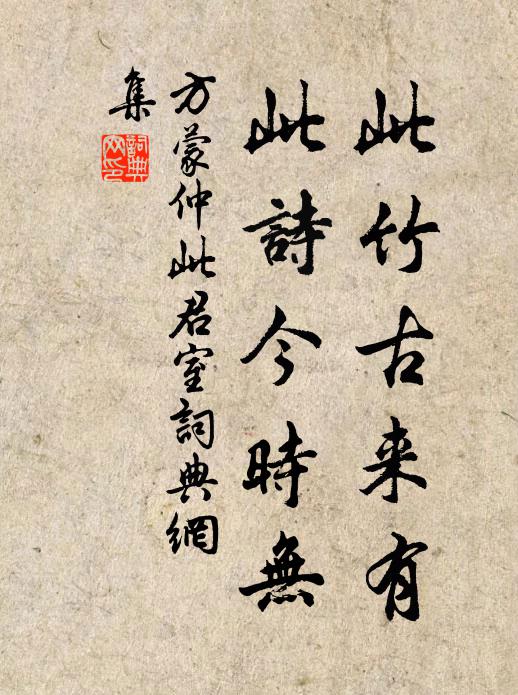 此竹古来有
此詩今時無
方蒙仲此君室詞典網
集
詞典
网印